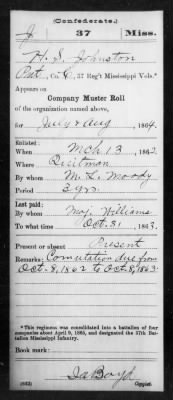 (Confederate.)
J 37 Miss.
H. S. Johnston
Pvt, Co. C, 37 Reg't Mississippi Vols.*
Appears on
Company Muster Roll
of the organization named above,
for July & Aug, 1864.
Enlisted:
When Mch 13, 1862.
Where Quitman
By whom M. L. Moody
Period 3 yrs.
Last paid:
By whom Maj. Williams
To what time Oct. 31, 1863.
Present or absent Present
Remarks: Comutation due from
Oct. 8, 1862 to Oct. 8, 1863.
*This regiment was consolidated into a battalion of four
companies about April 9, 1865, and designated the 37th Bat-
talion Mississippi Infantry.
Book mark:
Boyd
(642) Copyist.